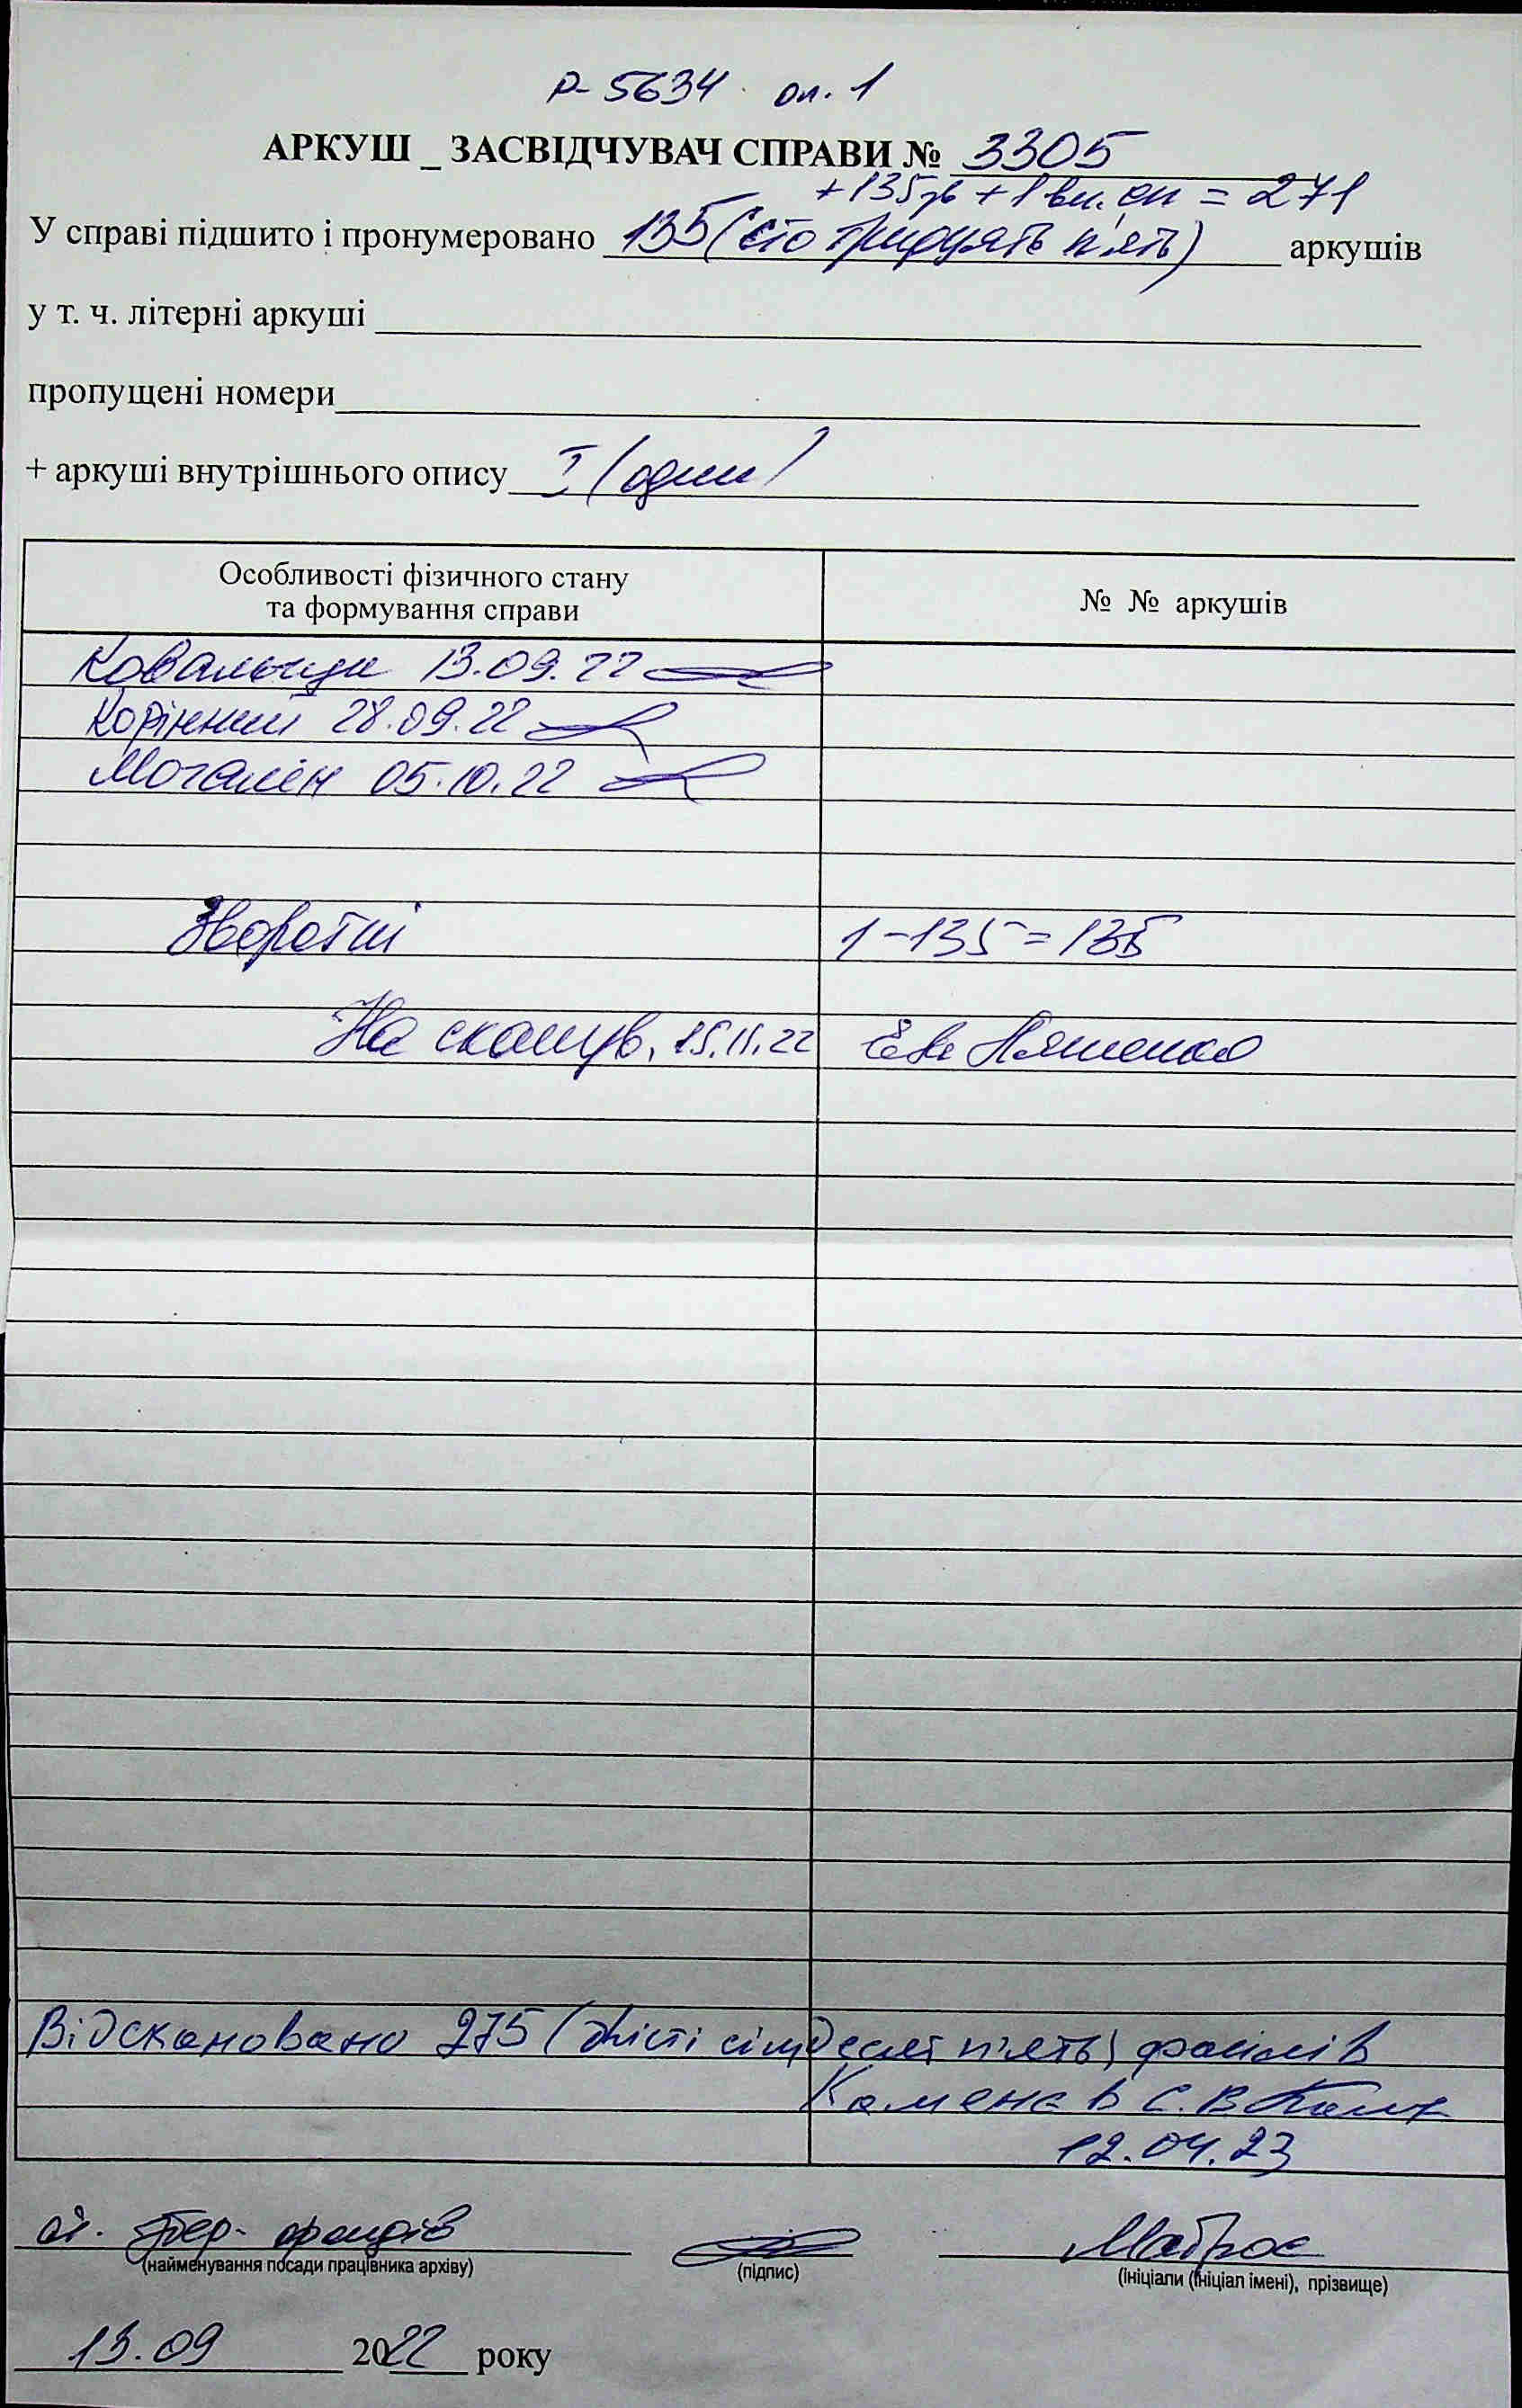 Р-5634 оп. 1
АРКУШ _ ЗАСВІДЧУВАЧ СПРАВИ № 3305
+135зв + 1 вн. оп = 271
У справі підшито і пронумеровано 135 (сто тридцять п'ять) аркушів
у т. ч. літерні аркуші
пропущені номери
+ аркуші внутрішнього опису I (один)
Особливості фізичного стану та формування справи
№ № аркушів
13.09.22
Корінний 28.09.22
05.10.22
Зворотні 1-135=135
На сканув. 15.11.22
Відскановано 275 (двісті сімдесят п'ять) файлів
Каменєв С.В.
12.04.23
ст. збер. фондів
Матрос
(найменування посади працівника архіву)
(підпис)
(ініціали (ініціал імені), прізвище)
13.09 2022 року